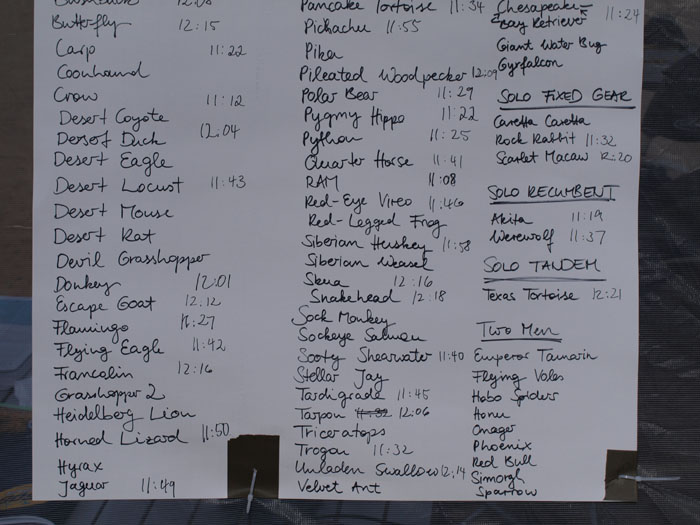 Butterfly 12:15
Carp 11:22
Coonhound
Crow 11:12
Desert Coyote
Desert Duck 12:04
Desert Eagle
Desert Locust 11:43
Desert Mouse
Desert Rat
Devil Grasshopper
Donkey 12:01
Escape Goat 12:12
Flamingo 11:27
Flying Eagle 11:42
Francolin 12:16
Grasshopper 2
Heidelberg Lion
Horned Lizard 11:50
Hyrax
Jaguar 11:49
Pancake Tortoise 11:34
Pichachu 11:55
Pika
Pileated Woodpecker 12:09
Polar Bear 11:29
Pygmy Hippo 11:22
Python 11:25
Quarter Horse 11:41
RAM 11:08
Red-Eye Vireo 11:46
Red-Legged Frog
Siberian Huskey 11:58
Siberian Weasel
Skua 12:16
Snakehead 12:18
Sock Monkey
Sockeye Salmon
Sooty Shearwater 11:40
Stellar Jay
Tardigrade 11:45
Tarpon 11:32 12:06
Triceratops
Trogon 11:32
Unladen Swallow 12:14
Velvet Ant
Chesapeake
Bay Retriever 11:24
Giant Water Bug
Gyrfalcon
SOLO FIXED GEAR
Caretta Caretta
Rock Rabbit 11:32
Scarlet Macaw 12:20
SOLO RECUMBENT
Akita 11:19
Werewolf 11:37
SOLO TANDEM
Texas Tortoise 12:21
TWO MEN
Emperor Tamarin
Flying Voles
Hobo Spiders
Honu
Onager
Phoenix
Red Bull
Simorgh
Sparrow